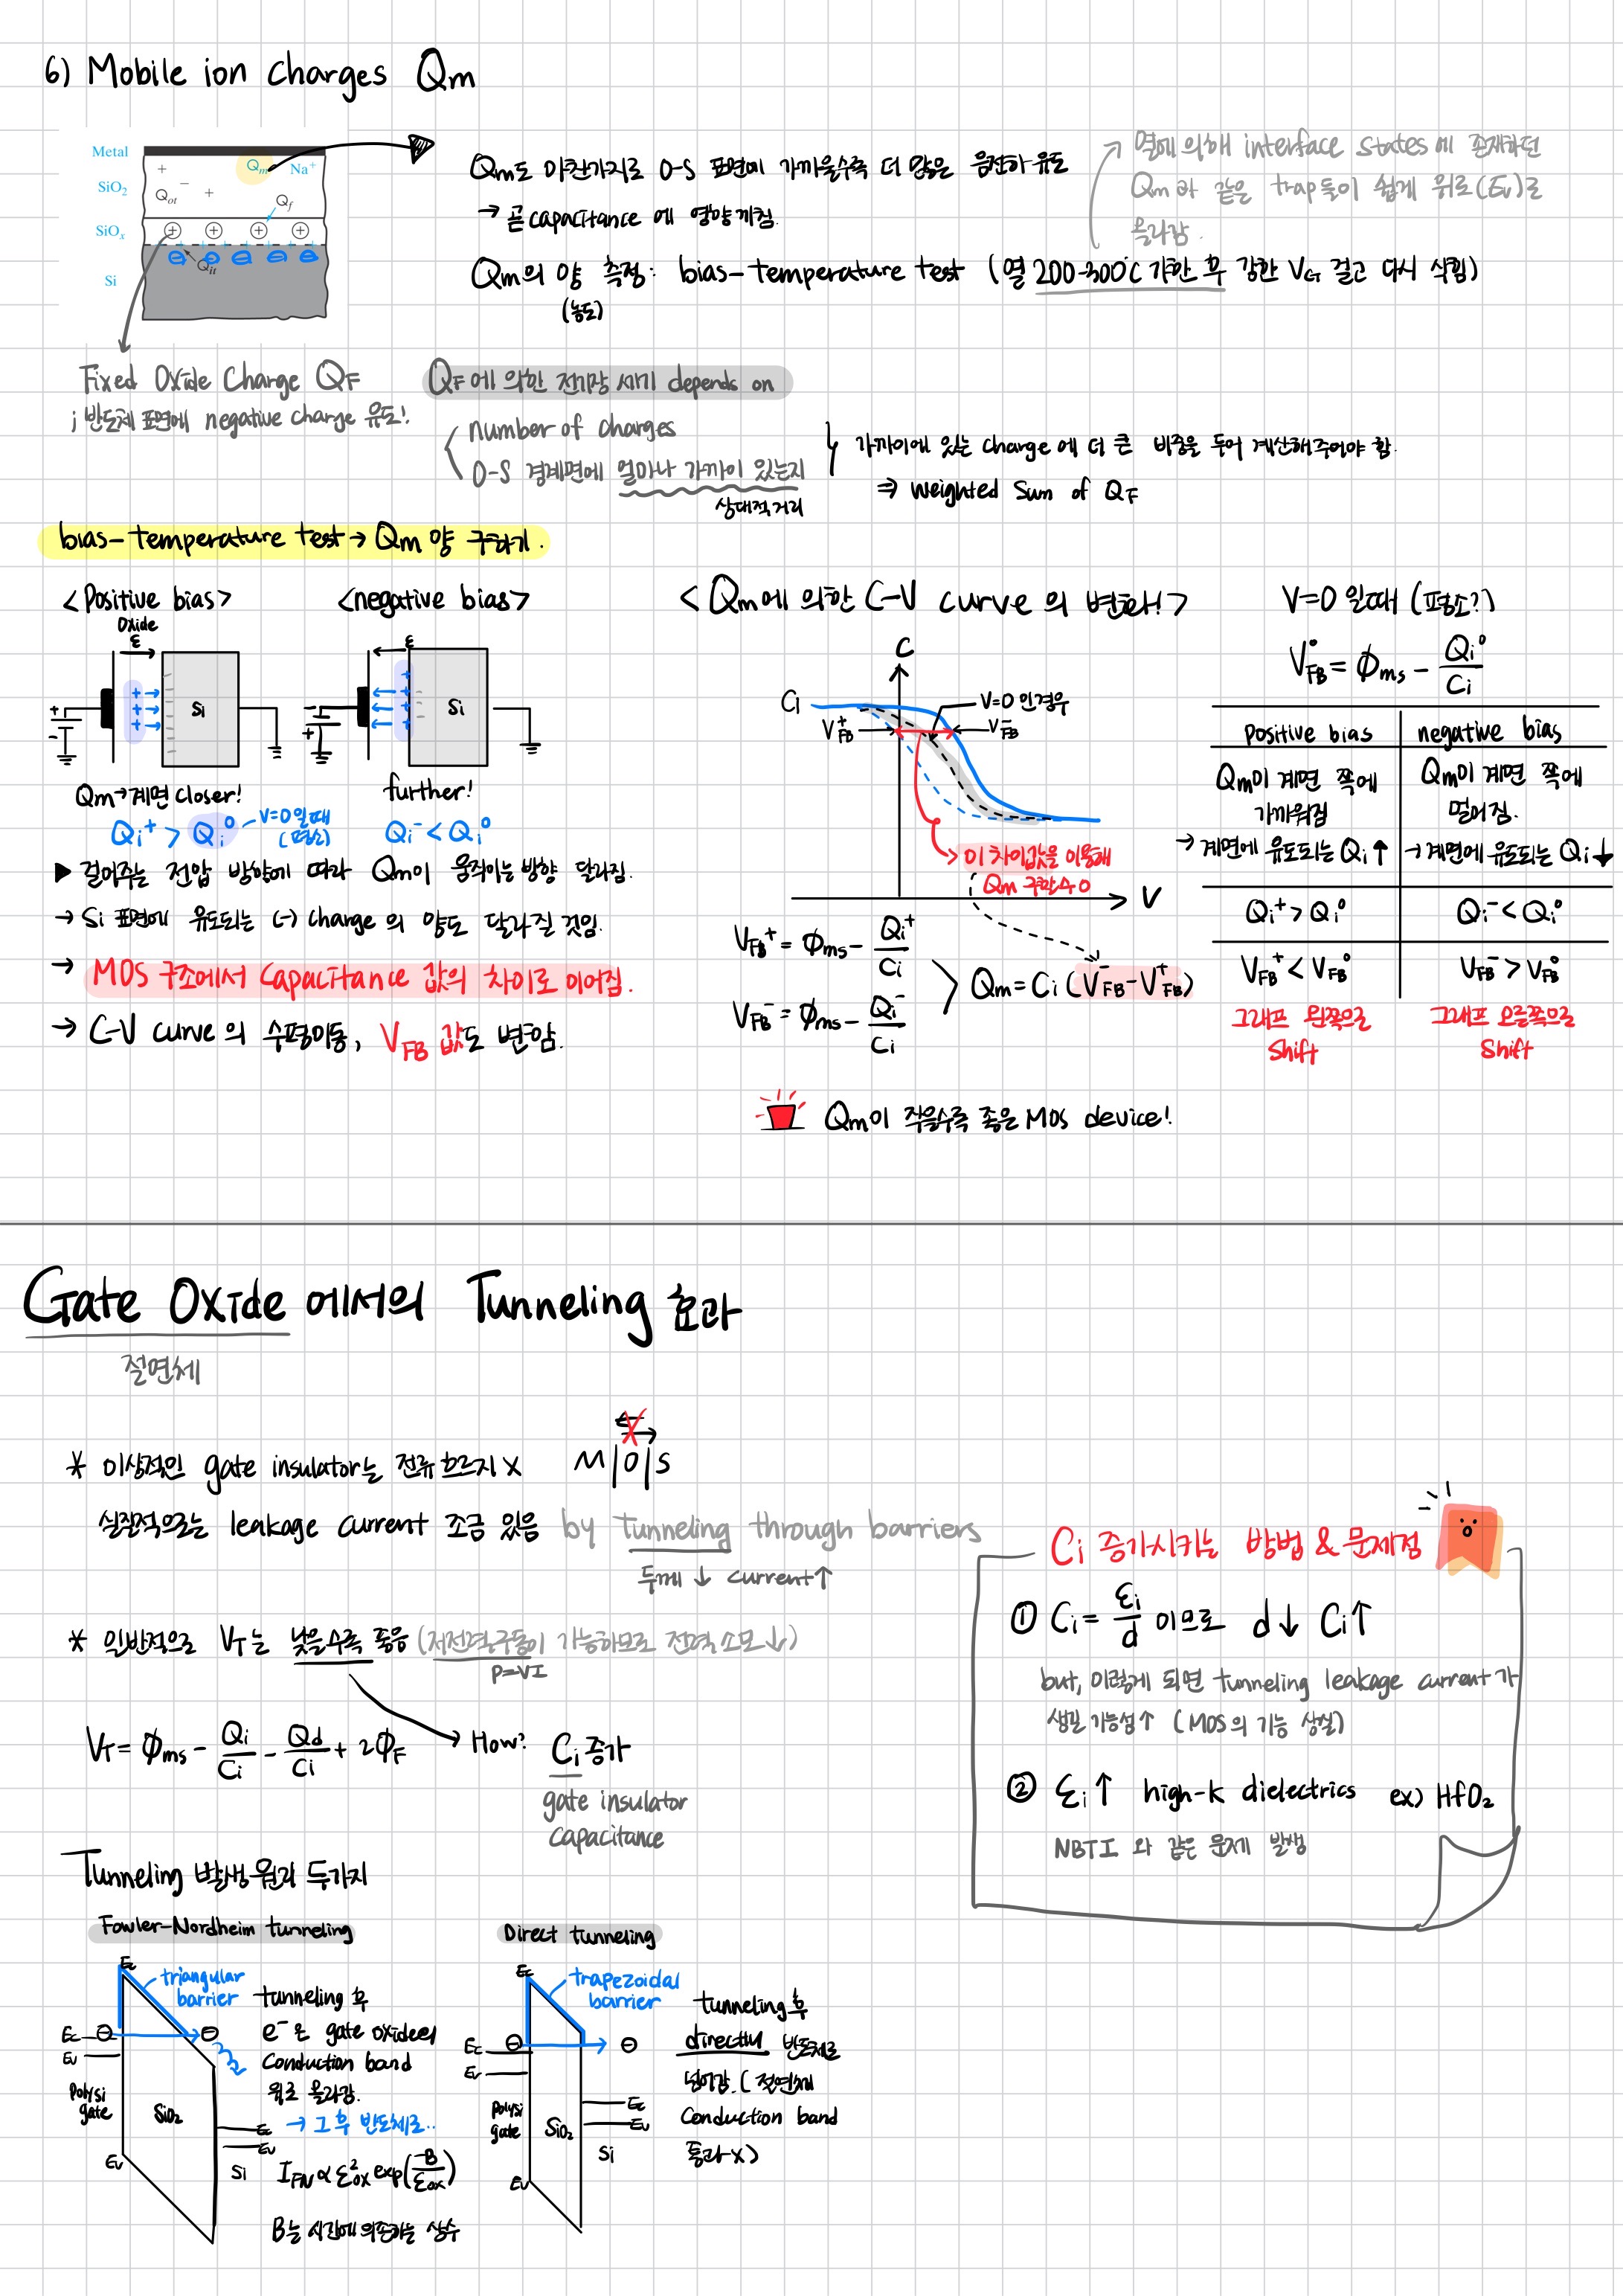 6) Mobile ion charges Qm
Metal
SiO2
SiOx
Si
+ - +
Qm
Na+
Qot
Qf
Qit
Qm도 마찬가지로 O-S 표면에 가까울수록 더 많은 음전하 유도
→ 곧 capacitance 에 영향 끼침.
열에 의해 interface states 에 존재하던
Qm와 같은 trap들이 쉽게 위로(Ev)로
올라감.
Qm의 양 측정: bias-temperature test (열 200-300℃ 가한 후 강한 VG 걸고 다시 식힘)
(농도)
Fixed Oxide Charge QF
; 반도체 표면에 negative charge 유도!
QF에 의한 전기장 세기 depends on
number of charges
O-S 경계면에 얼마나 가까이 있는지
상대적 거리
가까이에 있는 charge에 더 큰 비중을 두어 계산해주어야 함.
⇒ weighted sum of QF
bias-temperature test → Qm 양 구하기.
<Positive bias>
oxide
ε
Si
Qm→계면 closer!
Qi+ > Qi0
V=0일때
(평소)
<negative bias>
ε
Si
further!
Qi- < Qi0
▶ 걸어주는 전압 방향에 따라 Qm이 움직이는 방향 달라짐.
→ Si 표면에 유도되는 (-) charge 의 양도 달라질 것임.
→ MOS 구조에서 Capacitance 값의 차이로 이어짐.
→ C-V curve 의 수평이동, VFB 값도 변함.
<Qm에 의한 C-V curve 의 변화!>
C
Ci
VFB+
V=0 인경우
VFB-
이 차이값을 이용해
Qm 구할수 O
V
VFB+ = Φms - Qi+/Ci
VFB- = Φms - Qi-/Ci
Qm = Ci (VFB- - VFB+)
V=0 일때 (평소?)
VFB0 = Φms - Qi0/Ci
positive bias
negative bias
Qm이 계면 쪽에
가까워짐
→ 계면에 유도되는 Qi↑
Qm이 계면 쪽에
멀어짐.
→ 계면에 유도되는 Qi↓
Qi+ > Qi0
Qi- < Qi0
VFB+ < VFB0
VFB- > VFB0
그래프 왼쪽으로
shift
그래프 오른쪽으로
shift
Qm이 작을수록 좋은 MOS device!
Gate Oxide 에서의 Tunneling 효과
절연체
* 이상적인 gate insulator는 전류 흐르지 X
M|O|S
실질적으로는 leakage current 조금 있음 by tunneling through barriers
두께↓ current↑
* 일반적으로 VT는 낮을수록 좋음 (저전력구동이 가능하므로 전력소모↓)
P=VI
VT = Φms - Qi/Ci - Qd/Ci + 2ΦF
How? Ci 증가
gate insulator
capacitance
Ci 증가시키는 방법 & 문제점
① Ci = εi/d 이므로 d↓ Ci↑
but, 이렇게 되면 tunneling leakage current가
생길 가능성↑ (MOS의 기능 상실)
② εi↑ high-k dielectrics ex) HfO2
NBTI 와 같은 문제 발생
Tunneling 발생 원리 두가지
Fowler-Nordheim tunneling
Ec
triangular
barrier
Ec
Ev
polysi
gate
SiO2
Ev
Ec
Ev
Si
tunneling 후
e-은 gate oxide의
conduction band
위로 올라감.
→ 그 후 반도체로..
IFN ∝ εox² exp(-B/εox)
B는 시간에 의존하는 상수
Direct tunneling
Ec
trapezoidal
barrier
Ec
Ev
polysi
gate
SiO2
Ev
Ec
Ev
Si
tunneling 후
directly 반도체로
넘어감. (절연체
conduction band
통과 X)